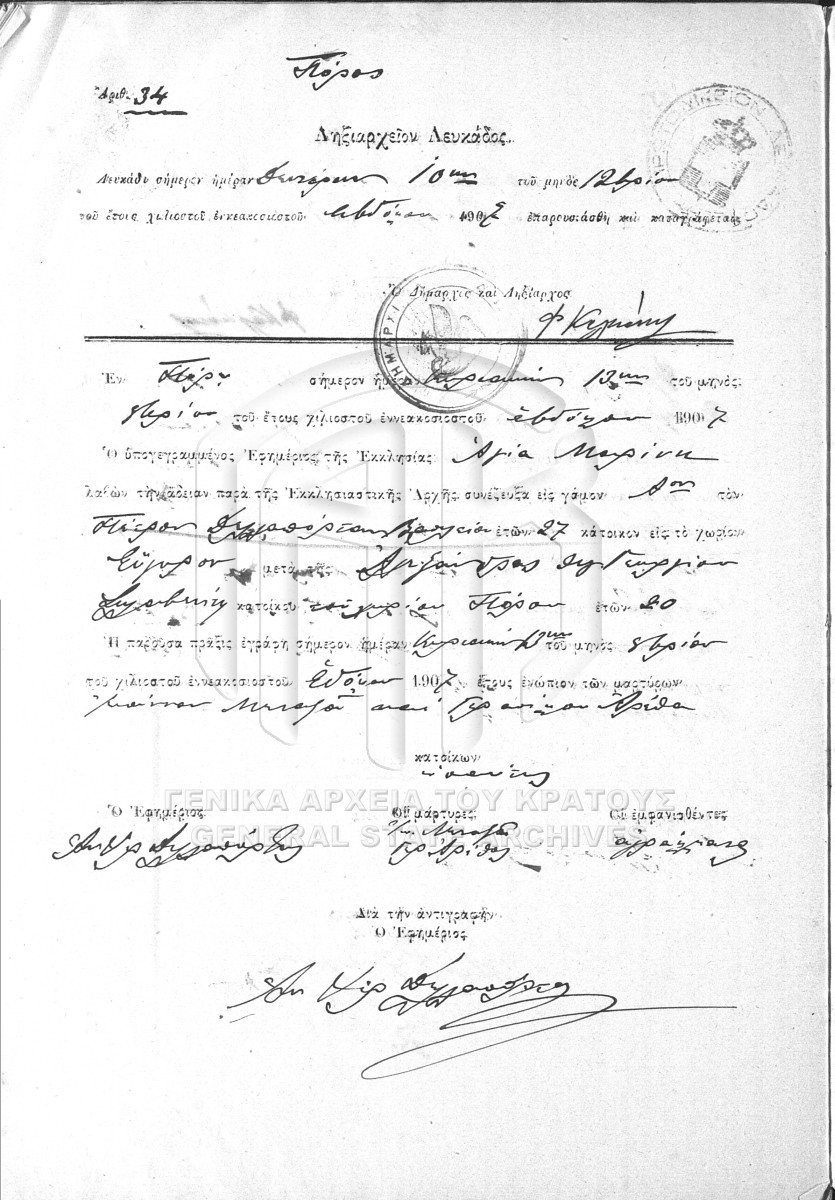 Πόρος
Ἀριθ. 34
Ληξιαρχεῖον Λευκάδος.
Λευκάδι σήμερον ἡμέραν Δευτέραν 10ην τοῦ μηνὸς 12βρίου
τοῦ ἔτους χιλιοστοῦ ἐννεακοσιοστοῦ ἑβδόμου 1907 ἐπαρουσιάσθη καὶ καταγράφεται
Ὁ Δήμαρχος καὶ Ληξίαρχος
Ἐν Πόρῳ σήμερον ἡμέραν Κυριακὴν τοῦ μηνὸς
8βρίου τοῦ ἔτους χιλιοστοῦ ἐννεακοσιοστοῦ ἑβδόμου 1907
Ὁ ὑπογεγραμμένος Ἐφημέριος τῆς Ἐκκλησίας Ἁγία Μαρίνα
λαβὼν τὴν ἄδειαν παρὰ τῆς Ἐκκλησιαστικῆς Ἀρχῆς συνέζευξα εἰς γάμον Αον τὸν
Πέτρον Βασιλείου ἐτῶν 27 κάτοικον εἰς τὸ χωρίον
Εὔγυρον μετὰ τῆς Ἀλεξάνδρας θυγ Γεωργίου
κατοίκου τοῦ χωρίου Πόρου ἐτῶν 20
Ἡ παροῦσα πρᾶξις ἐγράφη σήμερον ἡμέραν Κυριακὴν τοῦ μηνὸς 8βρίου
τοῦ χιλιοστοῦ ἐννεακοσιοστοῦ Ἑβδόμου 1907 ἔτους ἐνώπιον τῶν μαρτύρων
Ἰωάννου καὶ Ἀρέθα
κατοίκων
ΓΕΝΙΚΑ ΑΡΧΕΙΑ ΤΟΥ ΚΡΑΤΟΥΣ
GENERAL STATE ARCHIVES
Ὁ Ἐφημέριος Οἱ μάρτυρες Οἱ ἐμφανισθέντες
ἀγράμματοι
Διὰ τὴν ἀντιγραφὴν
Ὁ Ἐφημέριος